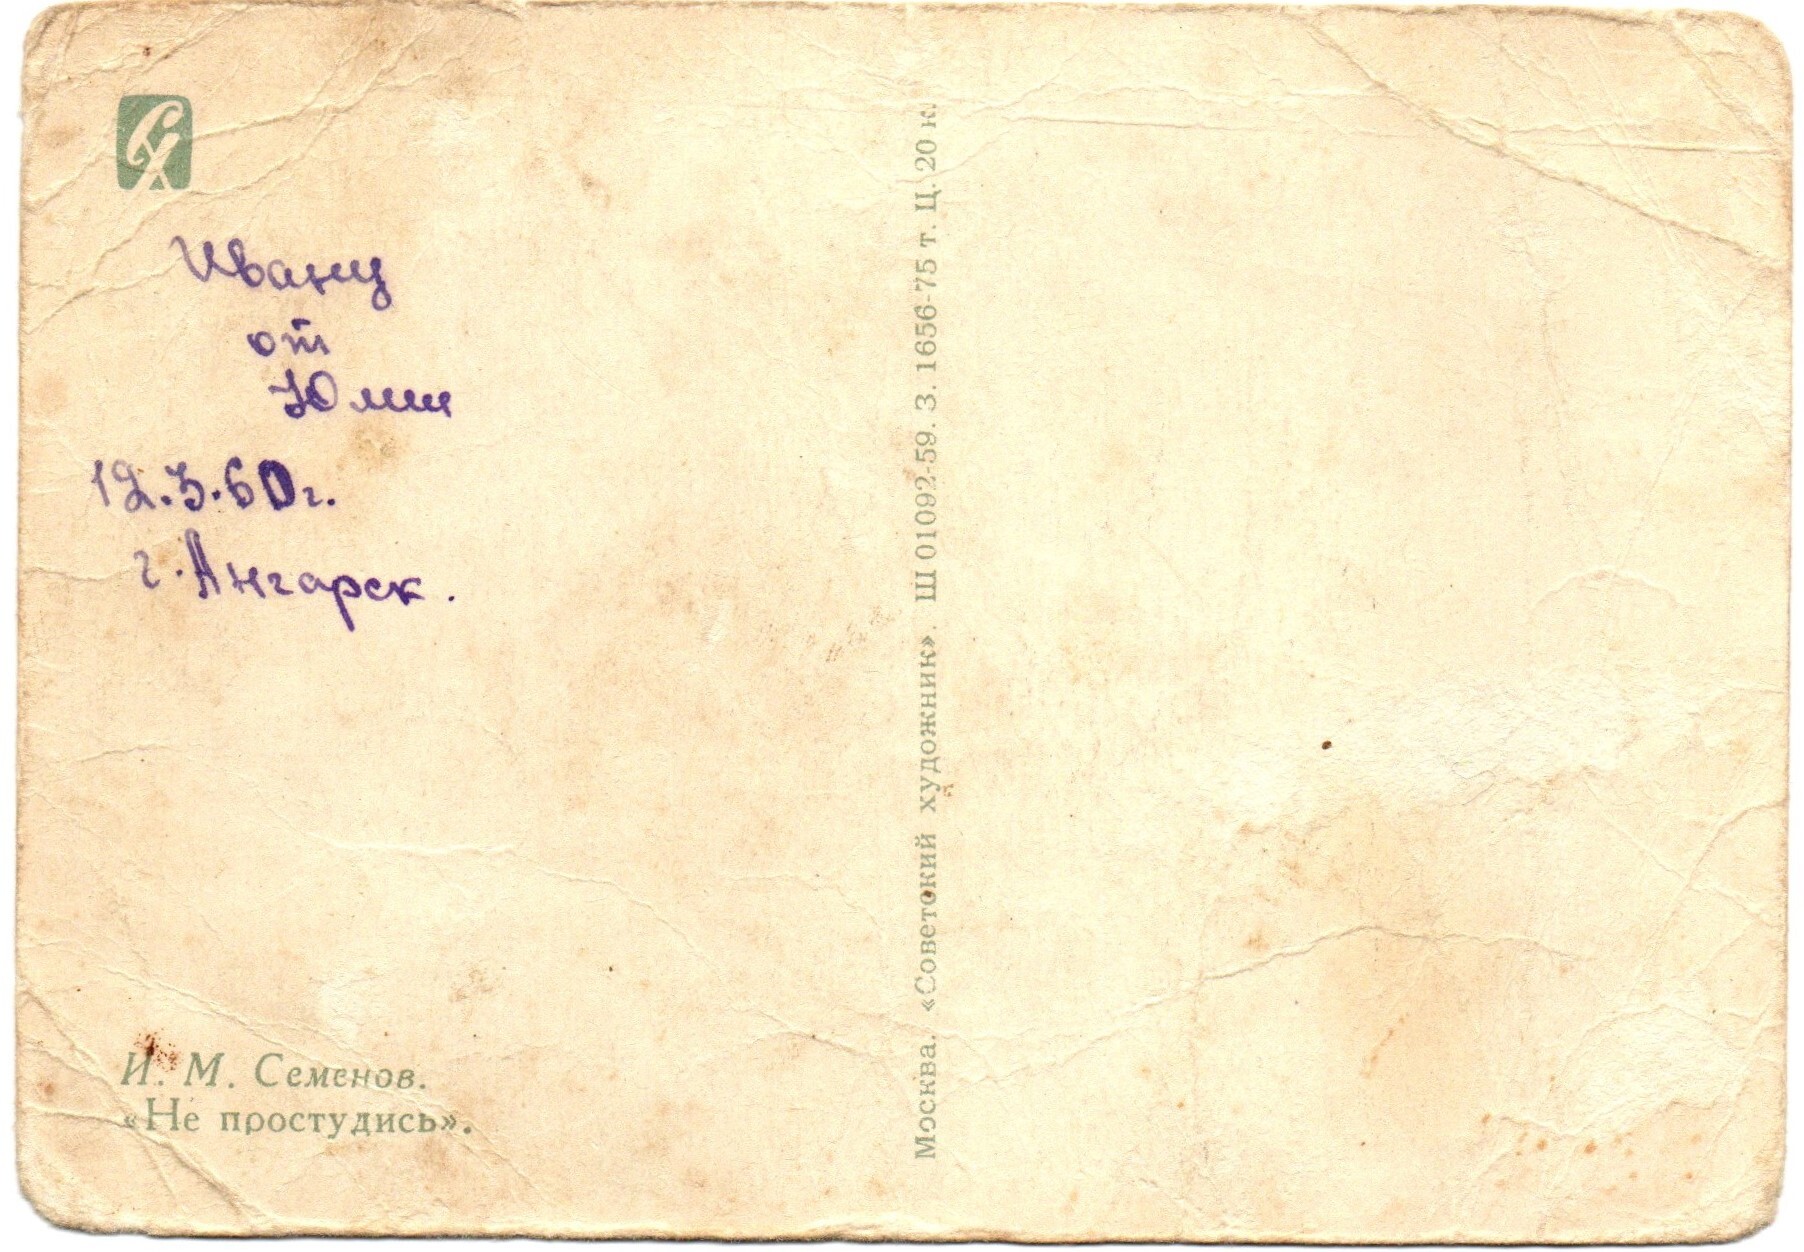 СХ
Ивану
от
Юлии
12.3.60г.
г. Ангарск.
И. М. Семенов.
«Не простудись».
Москва. «Советский художник». Ш 01092-59. З. 1656-75 т. Ц. 20 к.